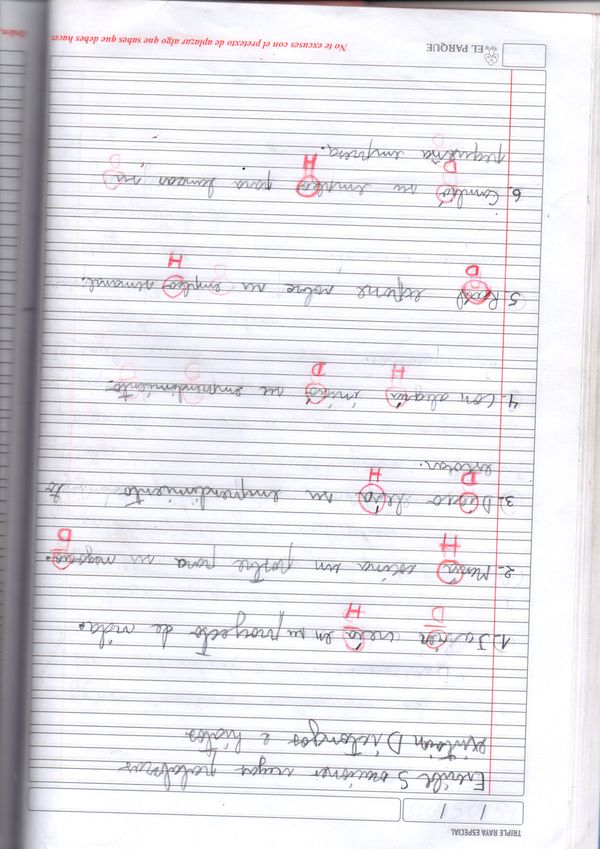 TRIPLE RAYA ESPECIAL
/ /
Escribe 5 oraciones cuyas palabras
existan Diptongos e hiatos
1. Javier creía en su proyecto de vida.
D H
2. María cocina un postre para su negocio.
H D
3. leía su emprendimiento
D H
4. Con alegría inició su emprendimiento.
H D
5. Raúl expone sobre su empleo semanal.
D H
6. Cambió su empleo para lanzar su
D H
pequeña empresa.
EL PARQUE
No te excuses con el pretexto de aplazar algo que sabes que debes hacer.